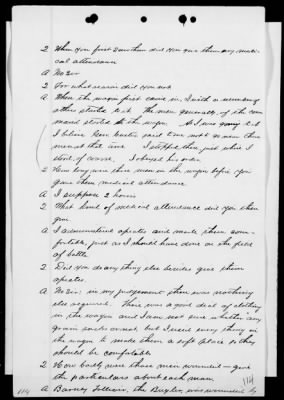 Q When you first saw them did you give them any medi-
cal attendance
A No Sir
Q For what reason did you not
A When the wagon first came in, I with a number of
others started to it. The men generally of the com
mand started to the wagon. As I was going to it
I believe Gen Custer said time not to see them
men at that time. I stopped then just where I
stood, of course, I obeyed his order.
Q How long were these men in the wagon before you
gave them medical attendance
A I suppose 2 hours
Q What kind of medical attendance did you then
give
A I administered opiates and made them com-
fortable, just as I should have done on the field
of battle
Q Did you do anything else besides give them
opiates
A No Sir: in my judgement there was nothing
else required. There was a good deal of clothing
in the wagon and I am not sure whether any
grain sacks or not but I used every thing in
the wagon to make them a soft place so they
should be comfortable
Q How badly were these men wounded - give
the particulars about each man.
A Barney Tolliver, the Bugler, was wounded by
114
114